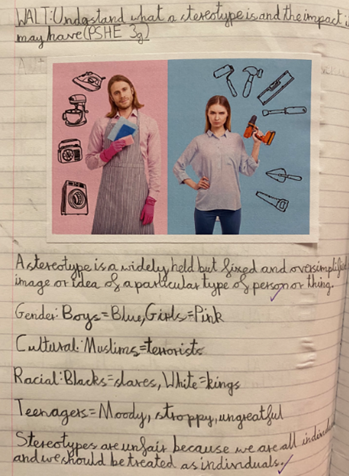 WALT: Understand what a stereotype is and the impact i
may have (PSHE 3g)
A stereotype is a widely held but fixed and oversimplifi
image or idea of a particular type of person or thing.
Gender: Boys=Blue, Girls=Pink
Cultural: Muslims=terrorists
Racial: Blacks=slaves, White=kings
Teenagers=Moody, stroppy, ungreatful
Stereotypes are unfair because we are all individ
and we should be treated as individuals.